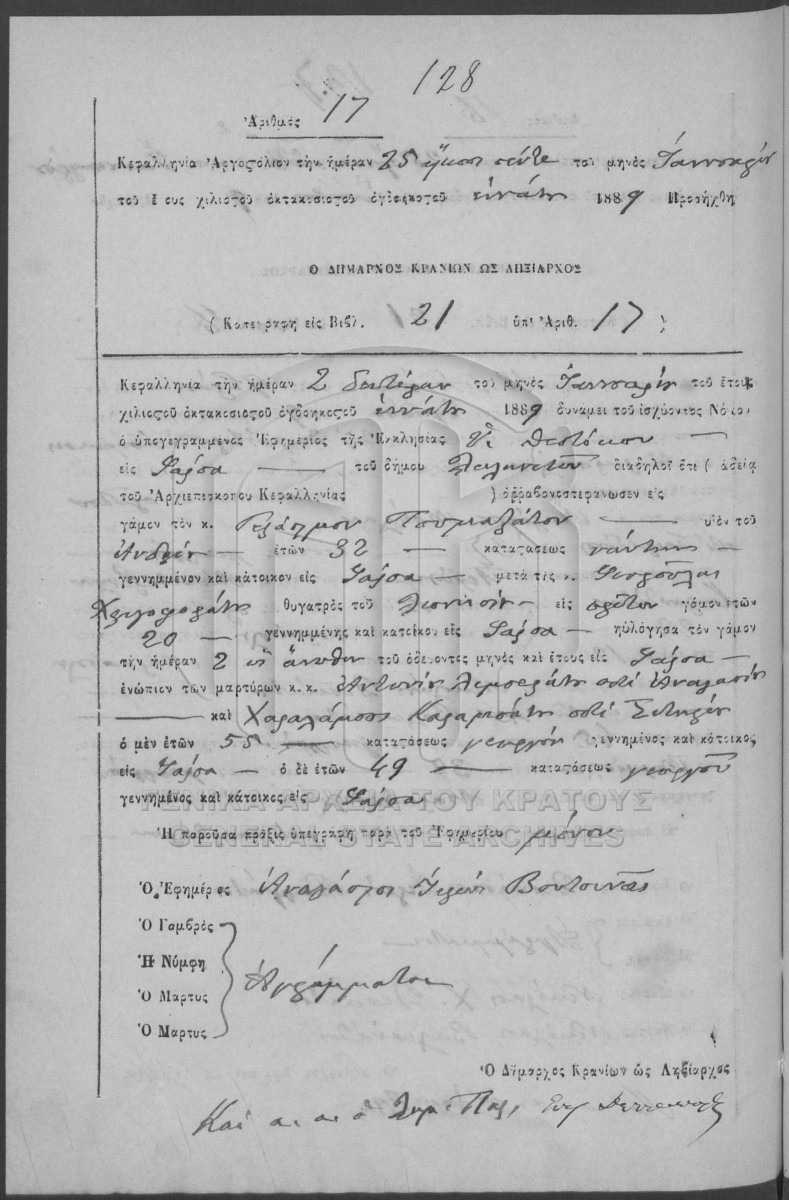 128
Ἀριθμὸς 17
Κεφαλληνία Ἀργοστόλιον τὴν ἡμέραν 25 εἴκοσι πέντε τοῦ μηνὸς Ἰαννουαρίου
τοῦ ἔτους χιλιοστοῦ ὀκτακοσιοστοῦ ὀγδοηκοστοῦ ἐννάτου 1889 Προσήχθη
Ο ΔΗΜΑΡΧΟΣ ΚΡΑΝΙΩΝ ΩΣ ΛΗΞΙΑΡΧΟΣ
(Κατεγράφη εἰς Βιβλ. 21 ὑπ' Ἀριθ. 17)
Κεφαλληνία τὴν ἡμέραν 2 δευτέραν τοῦ μηνὸς Ἰαννουαρίου τοῦ ἔτους
χιλιοστοῦ ὀκτακοσιοστοῦ ὀγδοηκοστοῦ ἐννάτου 1889 δυνάμει τοῦ ἰσχύοντος Νόμου
ὁ ὑπογεγραμμένος Ἐφημέριος τῆς Ἐκκλησίας Θεοτόκου
εἰς Φάρσα τοῦ δήμου διαδηλοῖ ὅτι (ἀδείᾳ
τοῦ Ἀρχιεπισκόπου Κεφαλληνίας ) ἀρραβονοστεφάνωσεν εἰς
γάμον τὸν κ. Γεράσιμον υἱὸν τοῦ
Ἀνδρέου ἐτῶν 32 καταστάσεως ναύτην
γεννημμένον καὶ κάτοικον εἰς Φάρσα μετὰ τῆς κ.
θυγατρὸς τοῦ Διονυσίου εἰς πρῶτον γάμον ἐτῶν
20 γεννημμένης καὶ κατοίκου εἰς Φάρσα ηὐλόγησα τὸν γάμον
τὴν ἡμέραν 2 ὡς ἄνωθεν τοῦ ὁδεύοντος μηνὸς καὶ ἔτους εἰς Φάρσα
ἐνώπιον τῶν μαρτύρων κ. κ. Ἀντωνίου ποτὲ Ἀναστασίου
καὶ Χαραλάμπους ποτὲ
ὁ μὲν ἐτῶν 55 καταστάσεως γεωργοῦ γεννημένος καὶ κάτοικος
εἰς Φάρσα ὁ δὲ ἐτῶν 49 καταστάσεως γεωργοῦ
γεννημένος καὶ κάτοικος εἰς Φάρσα
ΓΕΝΙΚΑ ΑΡΧΕΙΑ ΤΟΥ ΚΡΑΤΟΥΣ
Ἡ παροῦσα πρᾶξις ὑπεγράφη παρὰ τοῦ Ἐφημερίου μόνον
GENERAL STATE ARCHIVES
Ὁ Ἐφημέριος Ἀναστάσιος Ἱερεὺς Βουτσινᾶς
Ὁ Γαμβρὸς
Ἡ Νύμφη
Ἀγράμματοι
Ὁ Μάρτυς
Ὁ Μάρτυς
Ὁ Δήμαρχος Κρανίων ὡς Ληξίαρχος
Καὶ α. α. ὁ